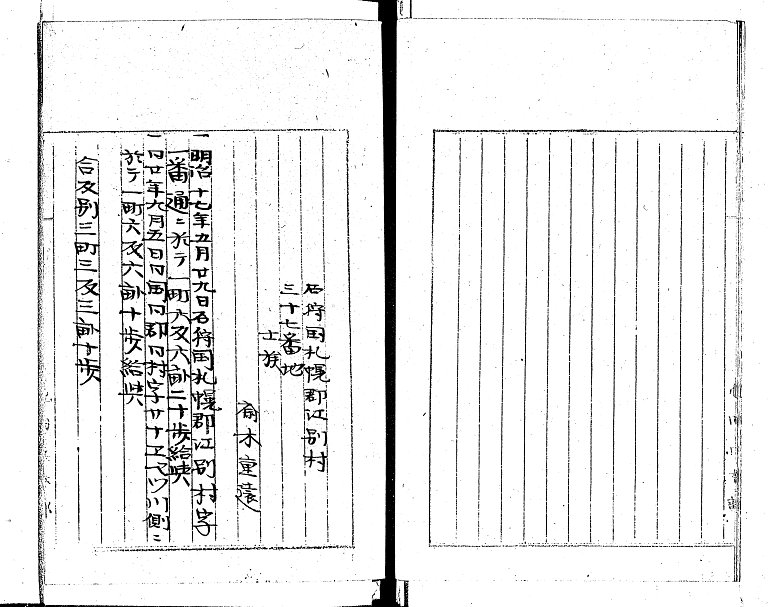 石狩国札幌郡江別村
三十七番地
士族
木重遠
一明治十七年五月廿九日石狩国札幌郡江別村字
一番通ニ於テ一町六反六畝二十歩給与
一同廿年六月五日同国同郡同村字 川側ニ
於テ一町六反六畝十歩給与
合反別三町三反三畝十歩